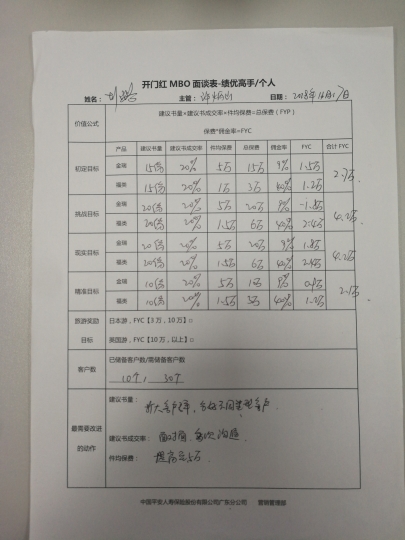 开门红 MBO 面谈表-绩优高手/个人
姓名： 主管： 日期：
价值公式
建议书量×建议书成交率×件均保费=总保费（FYP）
保费*佣金率=FYC
产品 建议书量 建议书成交率 件均保费 总保费 佣金率 FYC 合计 FYC
初定目标 金瑞 15份 20% 5万 15万 9% 1.5万 2.7万
福类 15份 20% 1万 3万 40% 1.2万
挑战目标 金瑞 20份 20% 5万 20万 9% 1.8万 4.2万
福类 20份 20% 1.5万 6万 40% 2.4万
现实目标 金瑞 20份 20% 5万 20万 9% 1.8万 4.2万
福类 20份 20% 1.5万 6万 40% 2.4万
瞄准目标 金瑞 10份 20% 5万 9% 0.9万 2.1万
福类 10份 20% 1.5万 3万 40% 1.2万
旅游奖励 日本游，FYC【3 万，10 万】○
目标 美国游，FYC【10 万，以上】○
客户数
已储备客户数/需储备客户数
10个， 30个
最需要改进的动作
建议书量：
扩大客户
建议书成交率： 面对面，多次沟通
件均保费： 提高至5万
中国平安人寿保险股份有限公司广东分公司 营销管理部